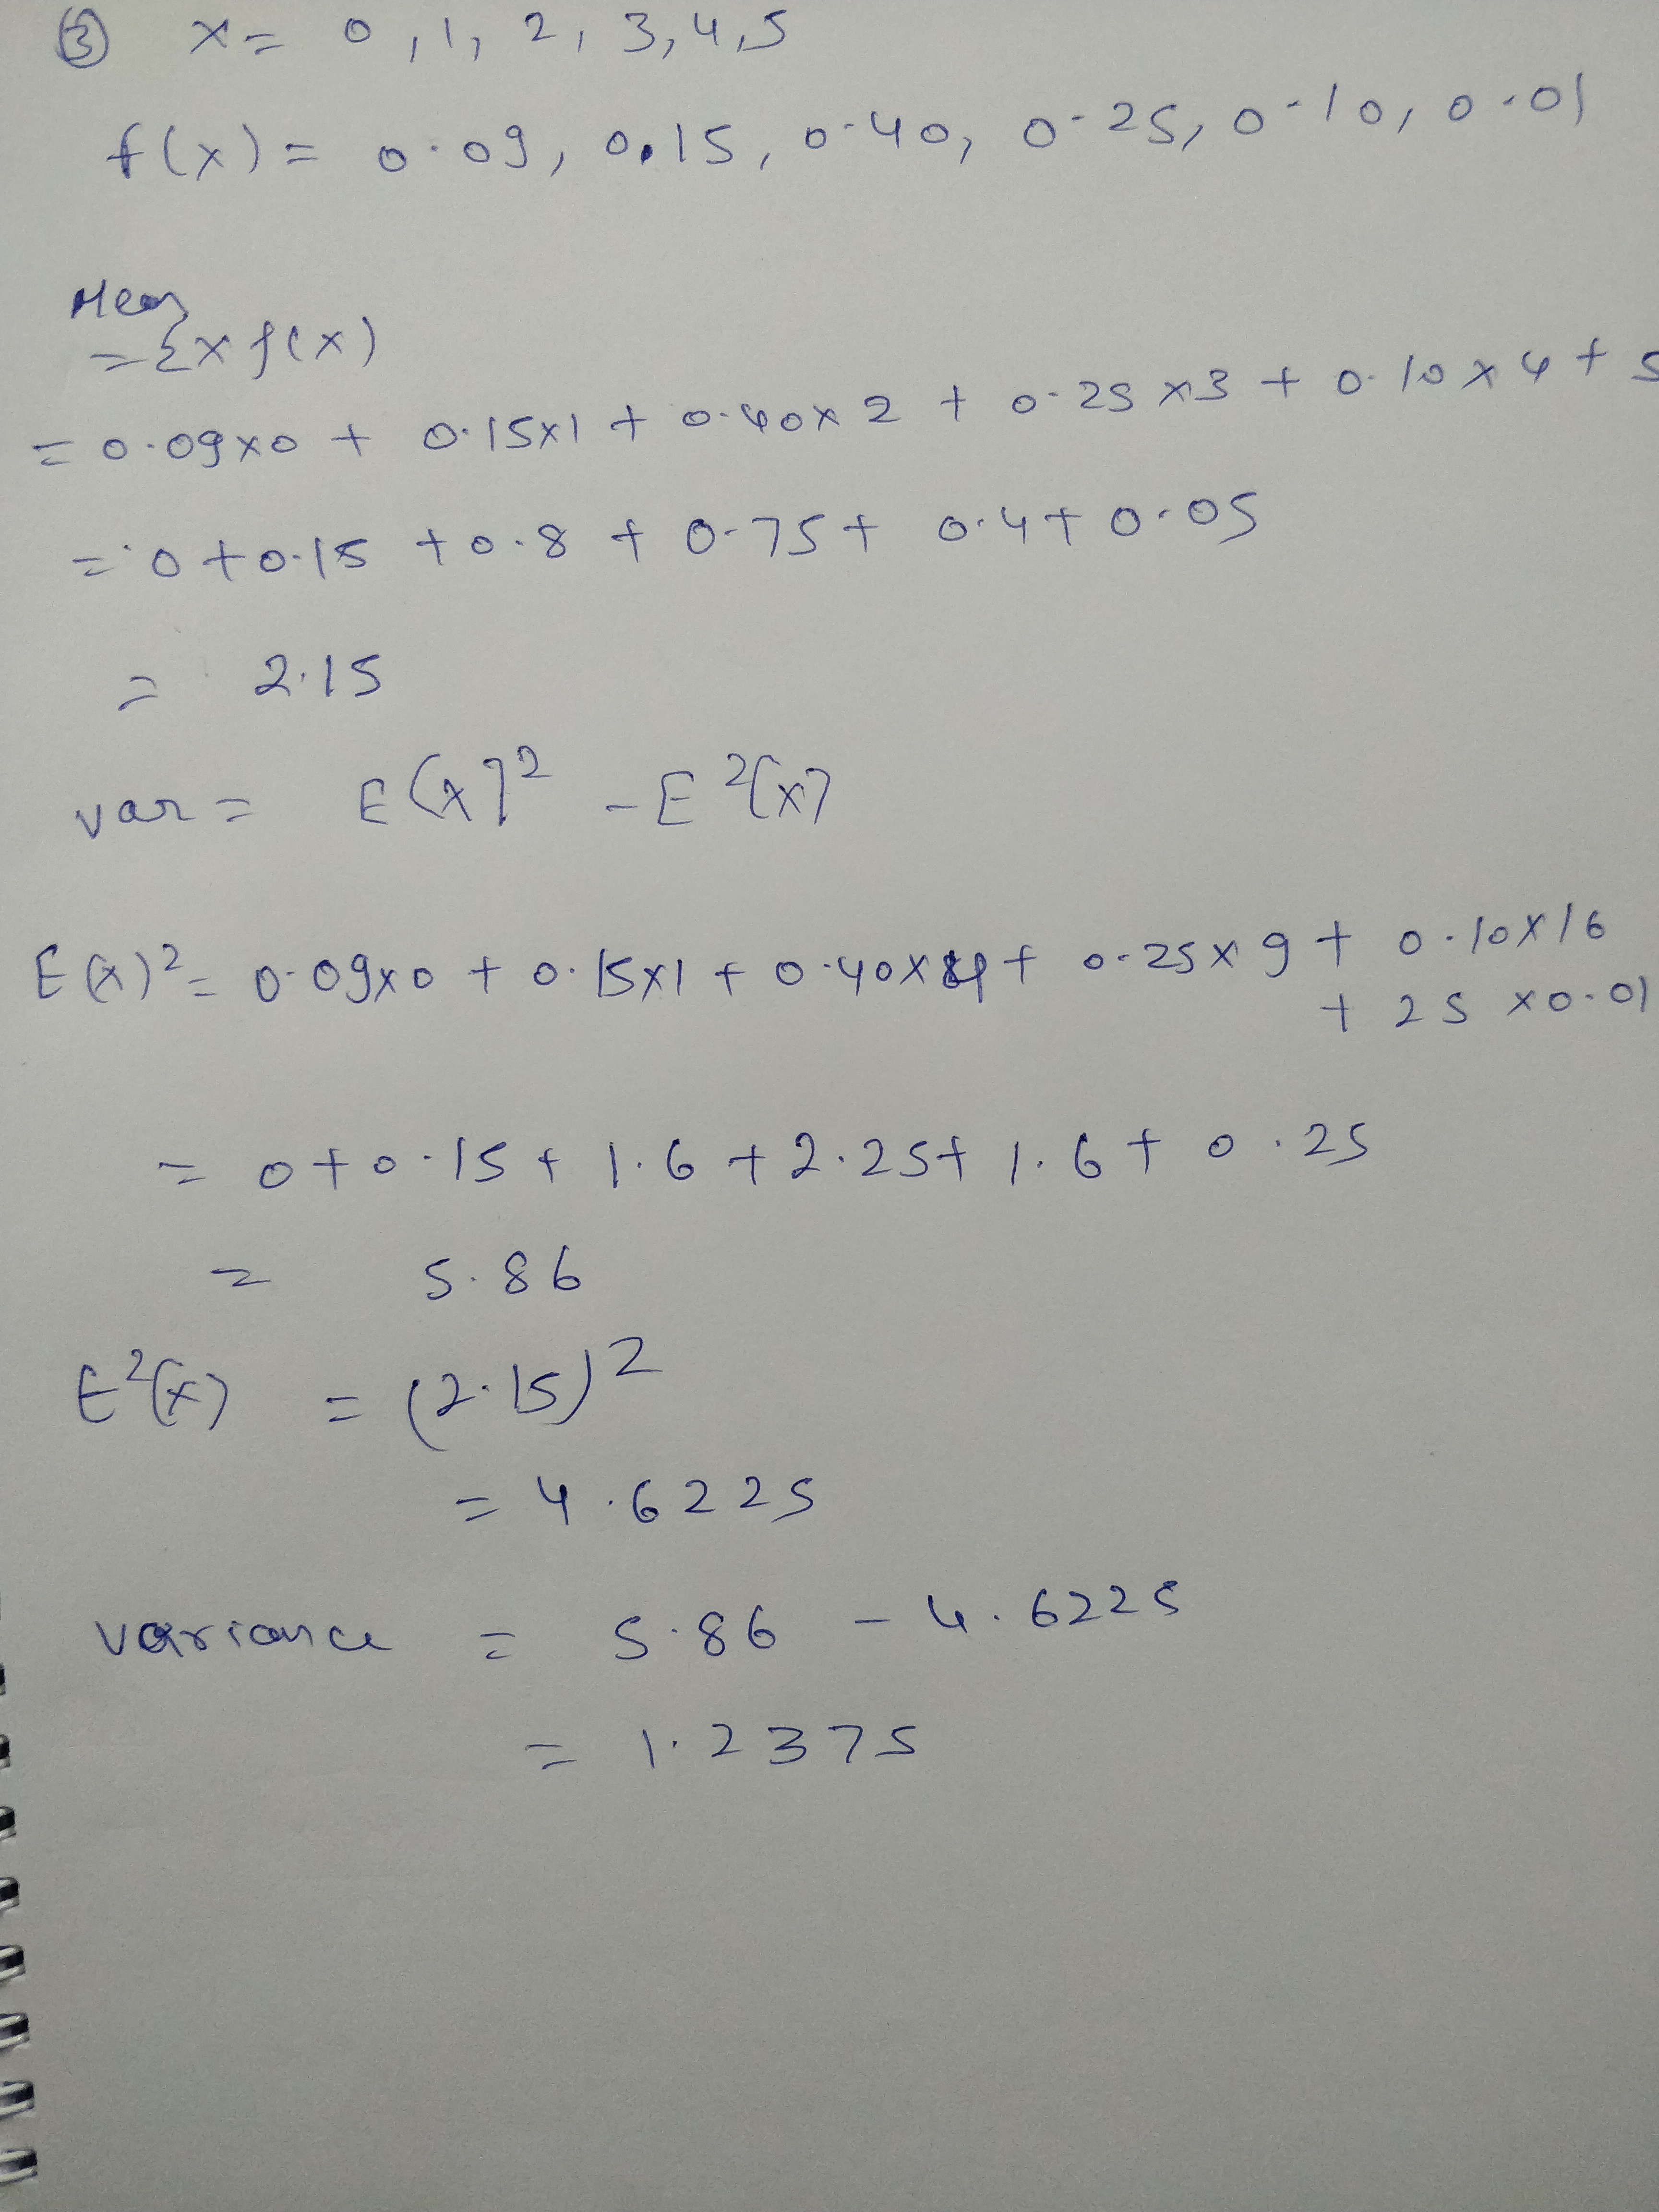 ③ x = 0, 1, 2, 3, 4, 5
f(x) = 0.09, 0.15, 0.40, 0.25, 0.10, 0.01
Mean
= Σx f(x)
= 0.09×0 + 0.15×1 + 0.40×2 + 0.25×3 + 0.10×4 + 5
= 0 + 0.15 + 0.8 + 0.75 + 0.4 + 0.05
= 2.15
var = E(x)² - E²(x)
E(x)² = 0.09×0 + 0.15×1 + 0.40×4 + 0.25×9 + 0.10×16
+ 25 ×0.01
= 0 + 0.15 + 1.6 + 2.25 + 1.6 + 0.25
= 5.86
E²(x) = (2.15)²
= 4.6225
variance = 5.86 - 4.6225
= 1.2375